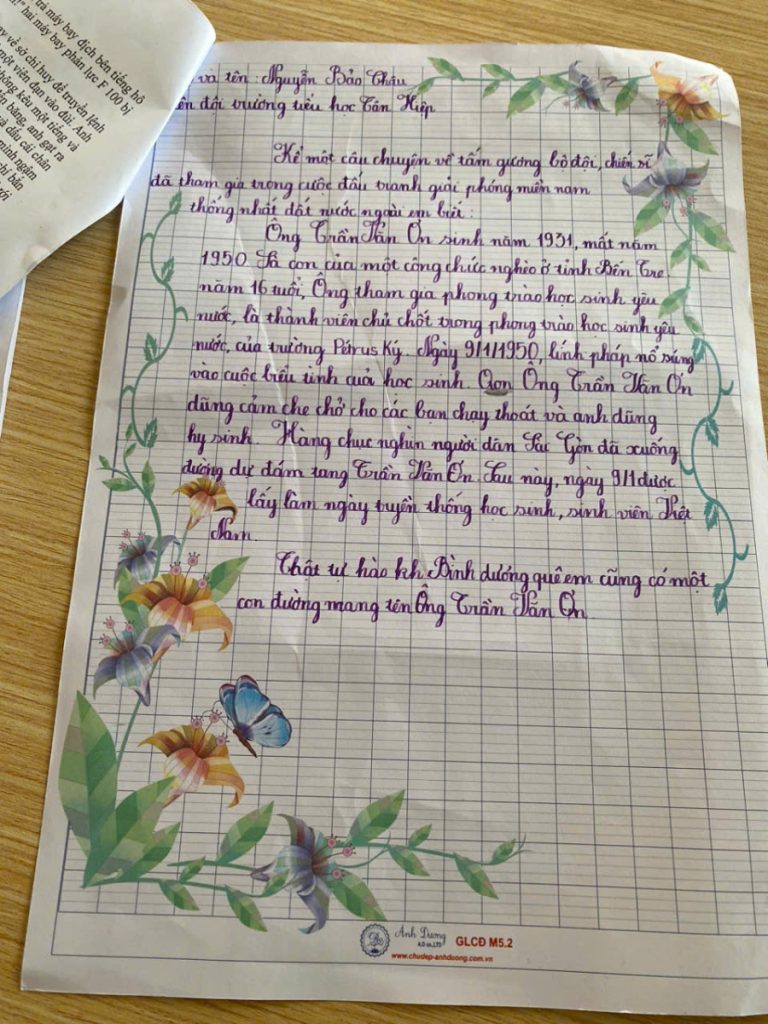 trả máy bay địch bên tiếng hô
hai máy bay phản lực F 100 bị
về sở chỉ huy để truyền lệnh
một viên đạn vào đùi. Anh
không kêu một tiếng và
băng, anh gạt ra
dấu cái chân
mình ngậm
bắn
và tên : Nguyễn Bảo Châu
ên đội trường tiểu học Tân Hiệp
Kể một câu chuyện về tấm gương bộ đội, chiến sĩ
đã tham gia trong cuộc đấu tranh giải phóng miền nam
thống nhất đất nước ngoài em biết :
Ông Trần Văn Ơn sinh năm 1931, mất năm
1950. Là con của một công chức nghèo ở tỉnh Bến Tre.
năm 16 tuổi, Ông tham gia phong trào học sinh yêu
nước, là thành viên chủ chốt trong phong trào học sinh yêu
nước, của trường Pétrus Ký. Ngày 9/1/1950, lính pháp nổ súng
vào cuộc biểu tình cuả học sinh. Ông Trần Văn Ơn
dũng cảm che chở cho các bạn chạy thoát và anh dũng
hy sinh. Hàng chục nghìn người dân Sài Gòn đã xuống
đường dự đám tang Trần Văn Ơn. Sau này, ngày 9/1 được
lấy làm ngày truyền thống học sinh, sinh viên Việt
Nam.
Thật tự hào khi Bình dương quê em cũng có một
con đường mang tên Ông Trần Văn Ơn.
Anh Dương
A.D co.,LTD
GLCĐ M5.2
www.chudep-anhduong.com.vn